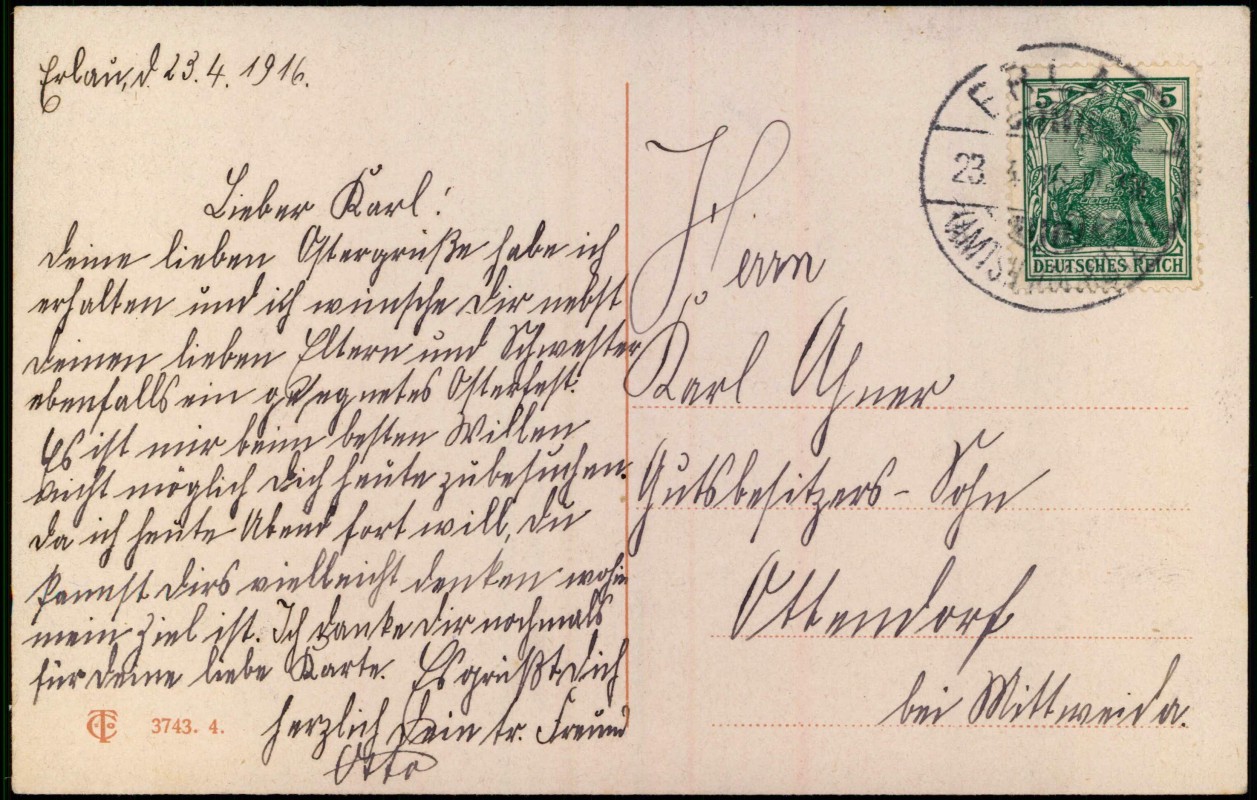 Erlau, d 23. 4. 1916.
Lieber Karl!
Deine lieben Ostergrüße habe ich
erhalten und ich wünsche Dir nebst
Deinen lieben Eltern und Schwester
ebenfalls ein gesegnetes Osterfest.
Es ist mir beim besten Willen
nicht möglich Dich heute zubesuchen.
da ich heute Abend fort will, du
kannst Dirs vielleicht denken wohin
mein Ziel ist. Ich danke Dir nochmals
für Deine liebe Karte. Es grüßt Dich
herzlich Dein tr. Freund
Otto
3743. 4.
5 5
DEUTSCHES REICH
ERLA
23. 4.
(AMTSH.
Herrn
Karl Ahner
Gutsbesitzers-Sohn
Ottendorf
bei Mittweida.